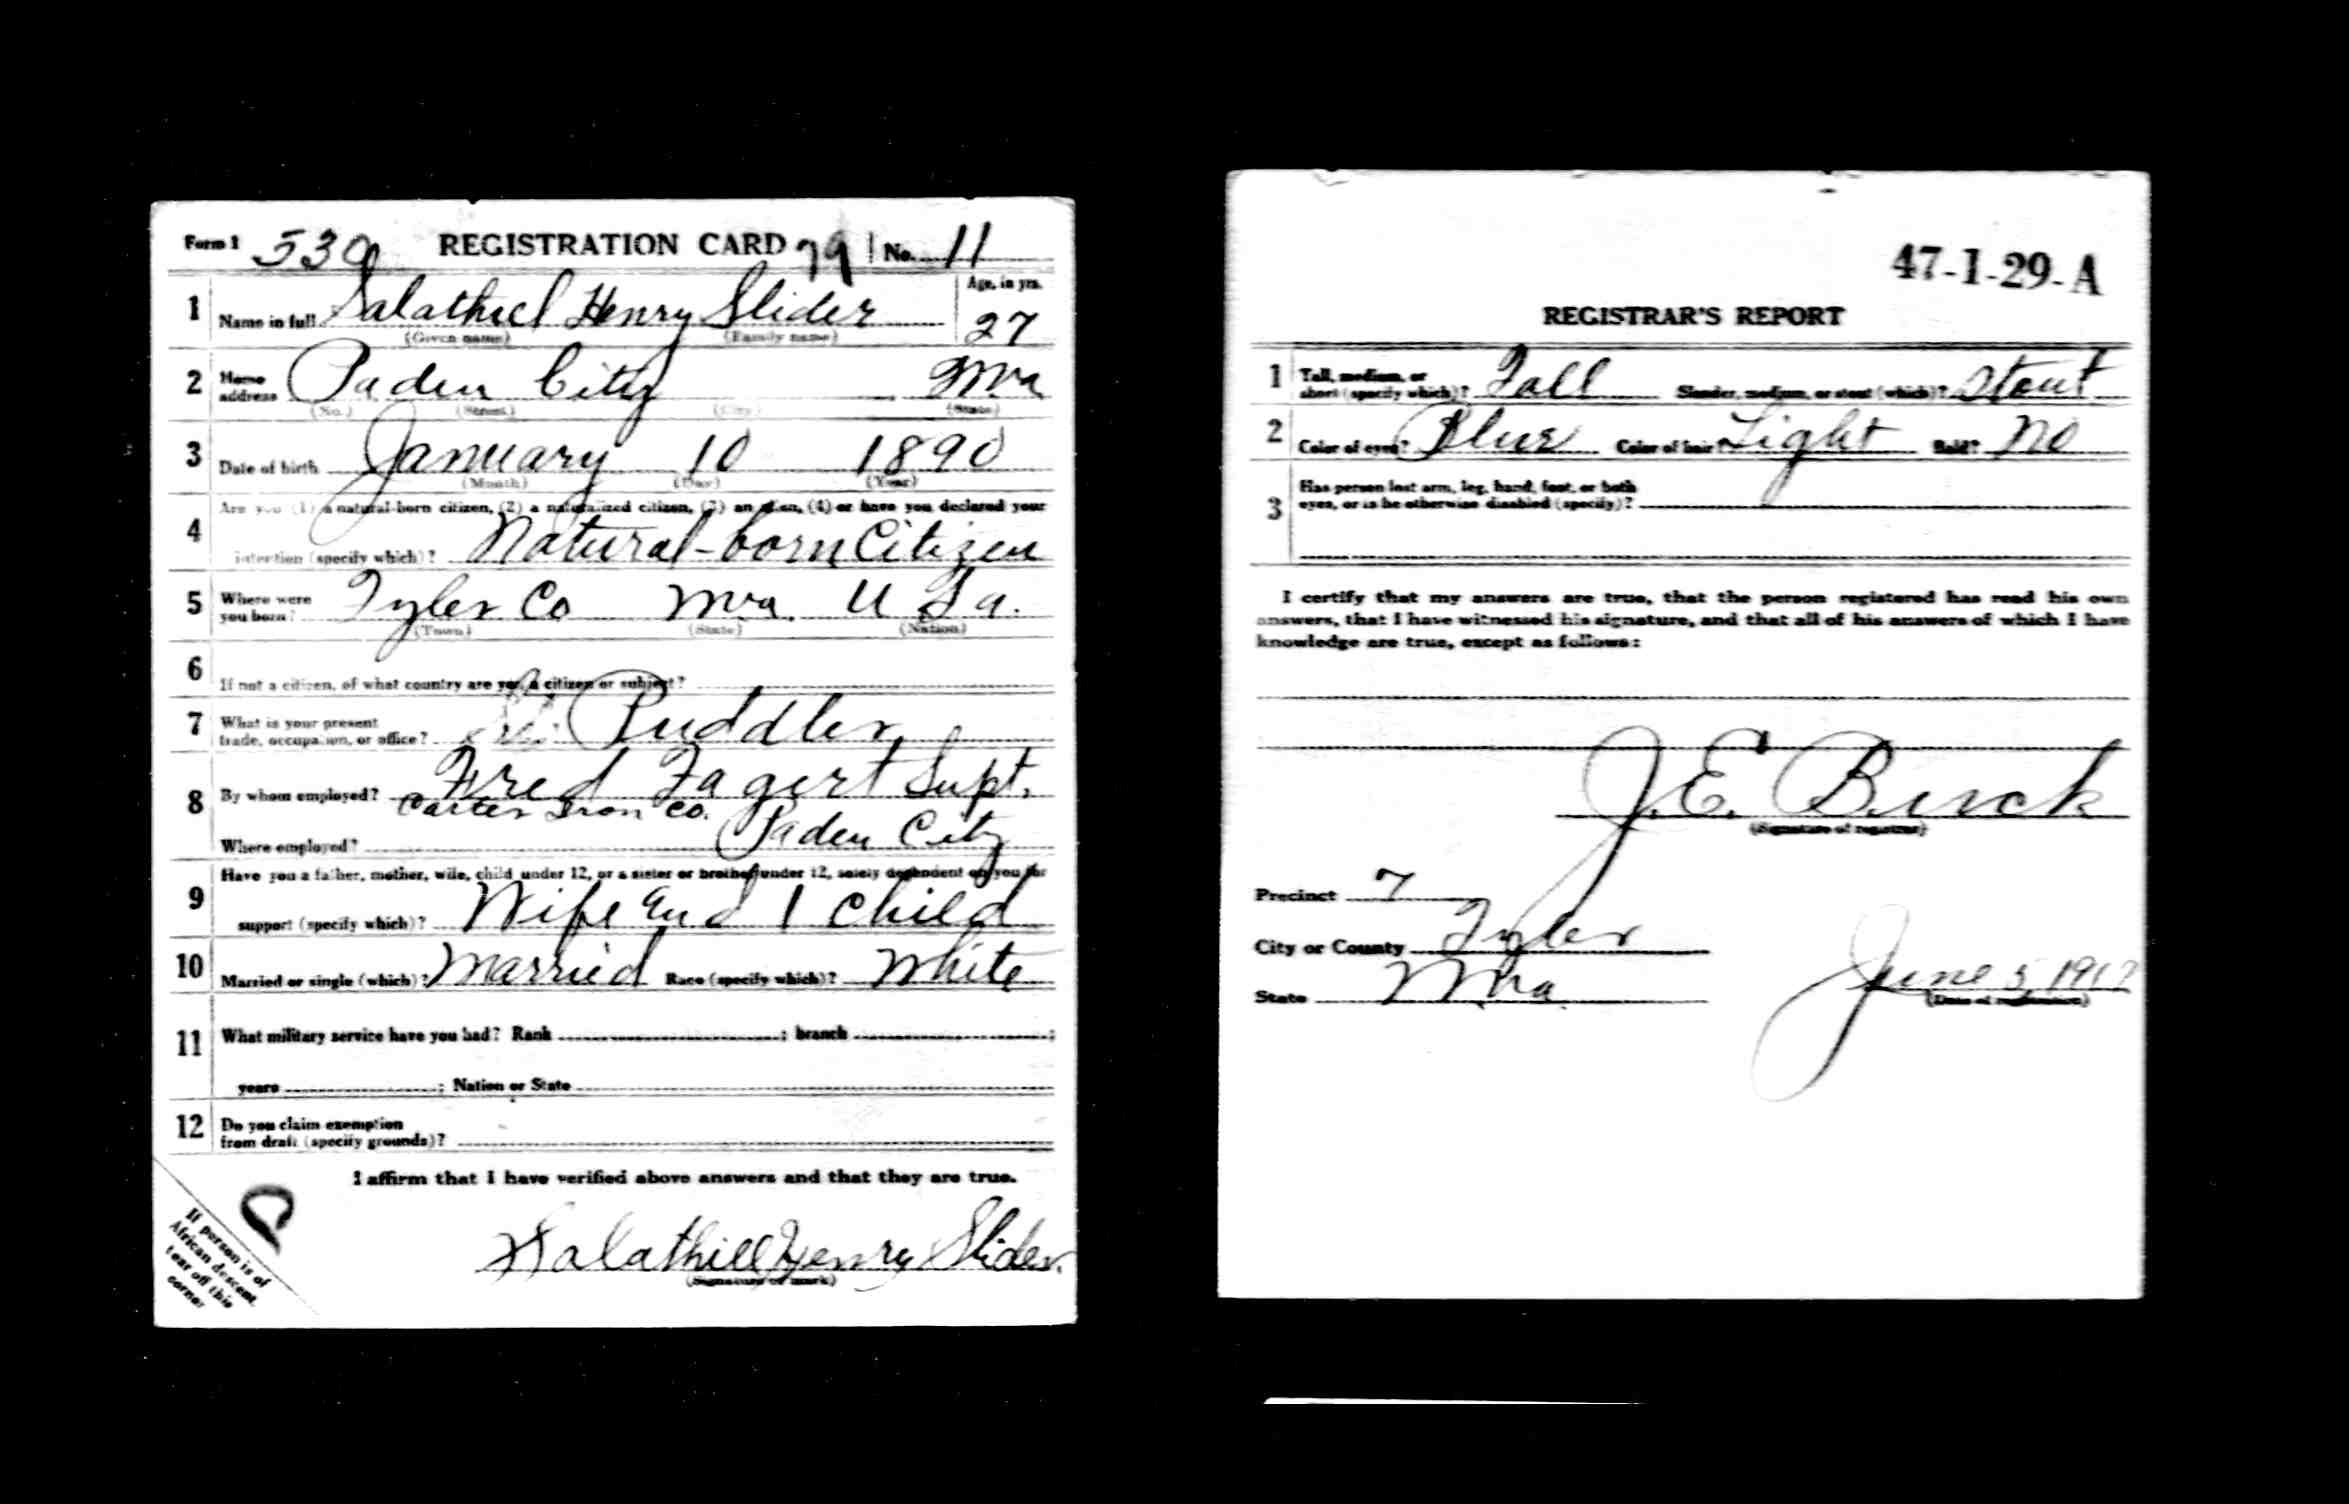 Form 1 530 REGISTRATION CARD 79 No. 11
1 Name in full Salathiel Henry Slider Age, in yrs. 27
(Given name) (Family name)
2 Home address Paden City Wva
(No.) (Street) (City) (State)
3 Date of birth January 10 1890
(Month) (Day) (Year)
4 Are you (1) a natural-born citizen, (2) a naturalized citizen, (3) an alien, (4) or have you declared your
intention (specify which)? Natural-born Citizen
5 Where were you born? Tyler Co Wva. U Sa.
(Town) (State) (Nation)
6 If not a citizen, of what country are you a citizen or subject?
7 What is your present
trade, occupation, or office? Puddler
8 By whom employed? Fred Fagert Supt.
Carter Iron Co.
Where employed? Paden City
9 Have you a father, mother, wife, child under 12, or a sister or brother under 12, solely dependent on you for
support (specify which)? Wife and 1 child
10 Married or single (which)? Married Race (specify which)? White
11 What military service have you had? Rank ; branch ;
years ; Nation or State
12 Do you claim exemption
from draft (specify grounds)?
I affirm that I have verified above answers and that they are true.
Salathiell Henry Slider.
(Signature or mark)
If person is of
African descent,
tear off this
corner
47-1-29-A
REGISTRAR'S REPORT
1 Tall, medium, or
short (specify which)? Tall Slender, medium, or stout (which)? Stout
2 Color of eyes? Blue Color of hair? Light Bald? No
3 Has person lost arm, leg, hand, foot, or both
eyes, or is he otherwise disabled (specify)?
I certify that my answers are true, that the person registered has read his own
answers, that I have witnessed his signature, and that all of his answers of which I have
knowledge are true, except as follows:
J. E. Burck
(Signature of registrar)
Precinct 7
City or County Tyler
State Wva June 5, 1917
(Date of registration)